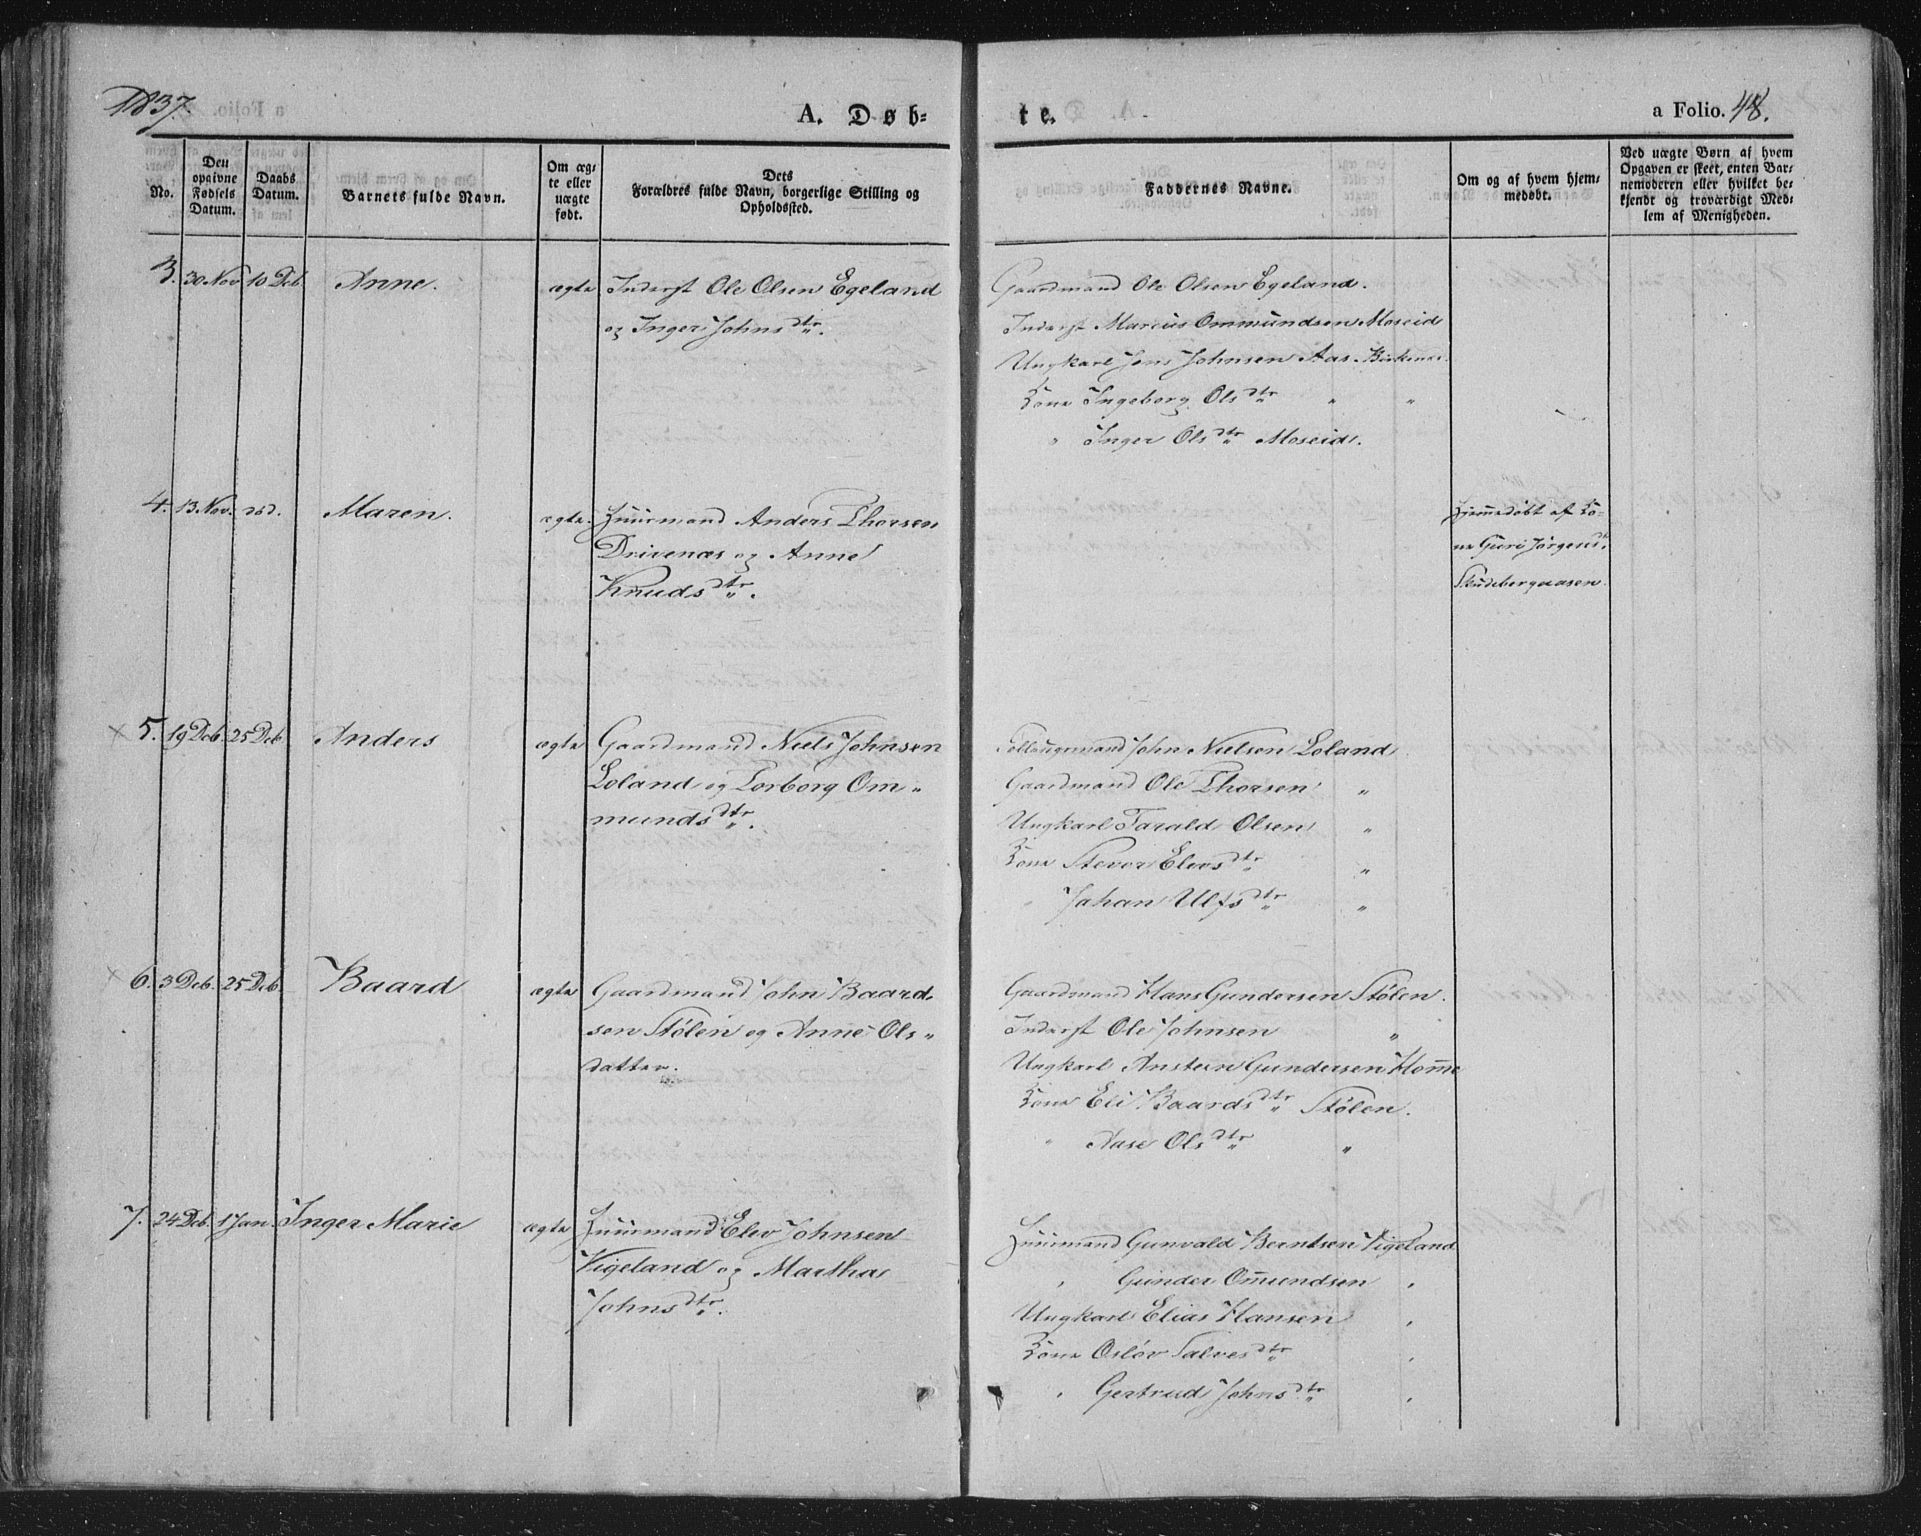 1837.
A. Døb=
te.
a Folio. 48.
No.
Den opgivne Fødsels Datum.
Daabs Datum.
Barnets fulde Navn.
Om ægte eller uægte født.
Dets Forældres fulde Navn, borgerlige Stilling og Opholdssted.
Faddernes Navne.
Om og af hvem hjemmedøbt.
Ved uægte Børn af hvem Opgaven er skeet, enten Barnemoderen eller hvilket bekjendt og troværdigt Medlem af Menigheden.
3. 30 Nov 10 Deb. Anne. ægte Inderst Ole Olsen Egeland
og Inger Johns dtr.
Gaardmand Ole Olsen Egeland.
Inderst Marcus Ommundsen Moseid
Ungkarl Jens Johnsen Aas. Birkenes.
Kone Ingeborg Ols dtr " "
" Inger Ols dtr Moseid.
4. 13 Nov. død. Maren. ægte. Huurmand Anders Thorsen
Drivenæs og Anne
Knuds dtr.
Hjemmedøbt af Ko=
ne Guri Jørgensd.
Skudebergaasen
5. 19 Deb. 25 Deb Anders ægte Gaardmand Niels Johnsen
Loland og Torborg Om"
munds dtr.
Føllaugsmand John Nielsen Loland
Gaardmand Ole Thorsen "
Ungkarl Tarald Olsen "
Kone Stevor Elevs dtr "
" Johan Ulfs dtr "
6. 3 Deb. 25 Deb. Baard ægte Gaardmand John Baard"
sen Stølen og Anne Ols"
datter.
Gaardmand Hans Gundersen Stølen.
Inderst Ole Johnsen "
Ungkarl Anstein Gundersen Hom̄e
Kone Eli Baards dtr Stølen.
" Aase Ols dtr "
7. 24 Deb. 1 Jan. Inger Marie ægte Huurmand Elev Johnsen
Vigeland og Martha
Johns dtr.
Huurmand Gunvald Berntsen Vigeland
" Gunder Om̄undsen "
Ungkarl Elias Hansen "
Kone Osløv Salves dtr "
" Gertrud Johns dtr "